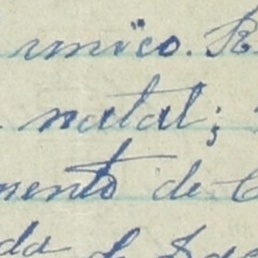 unico. R
natal;
mento de C
da